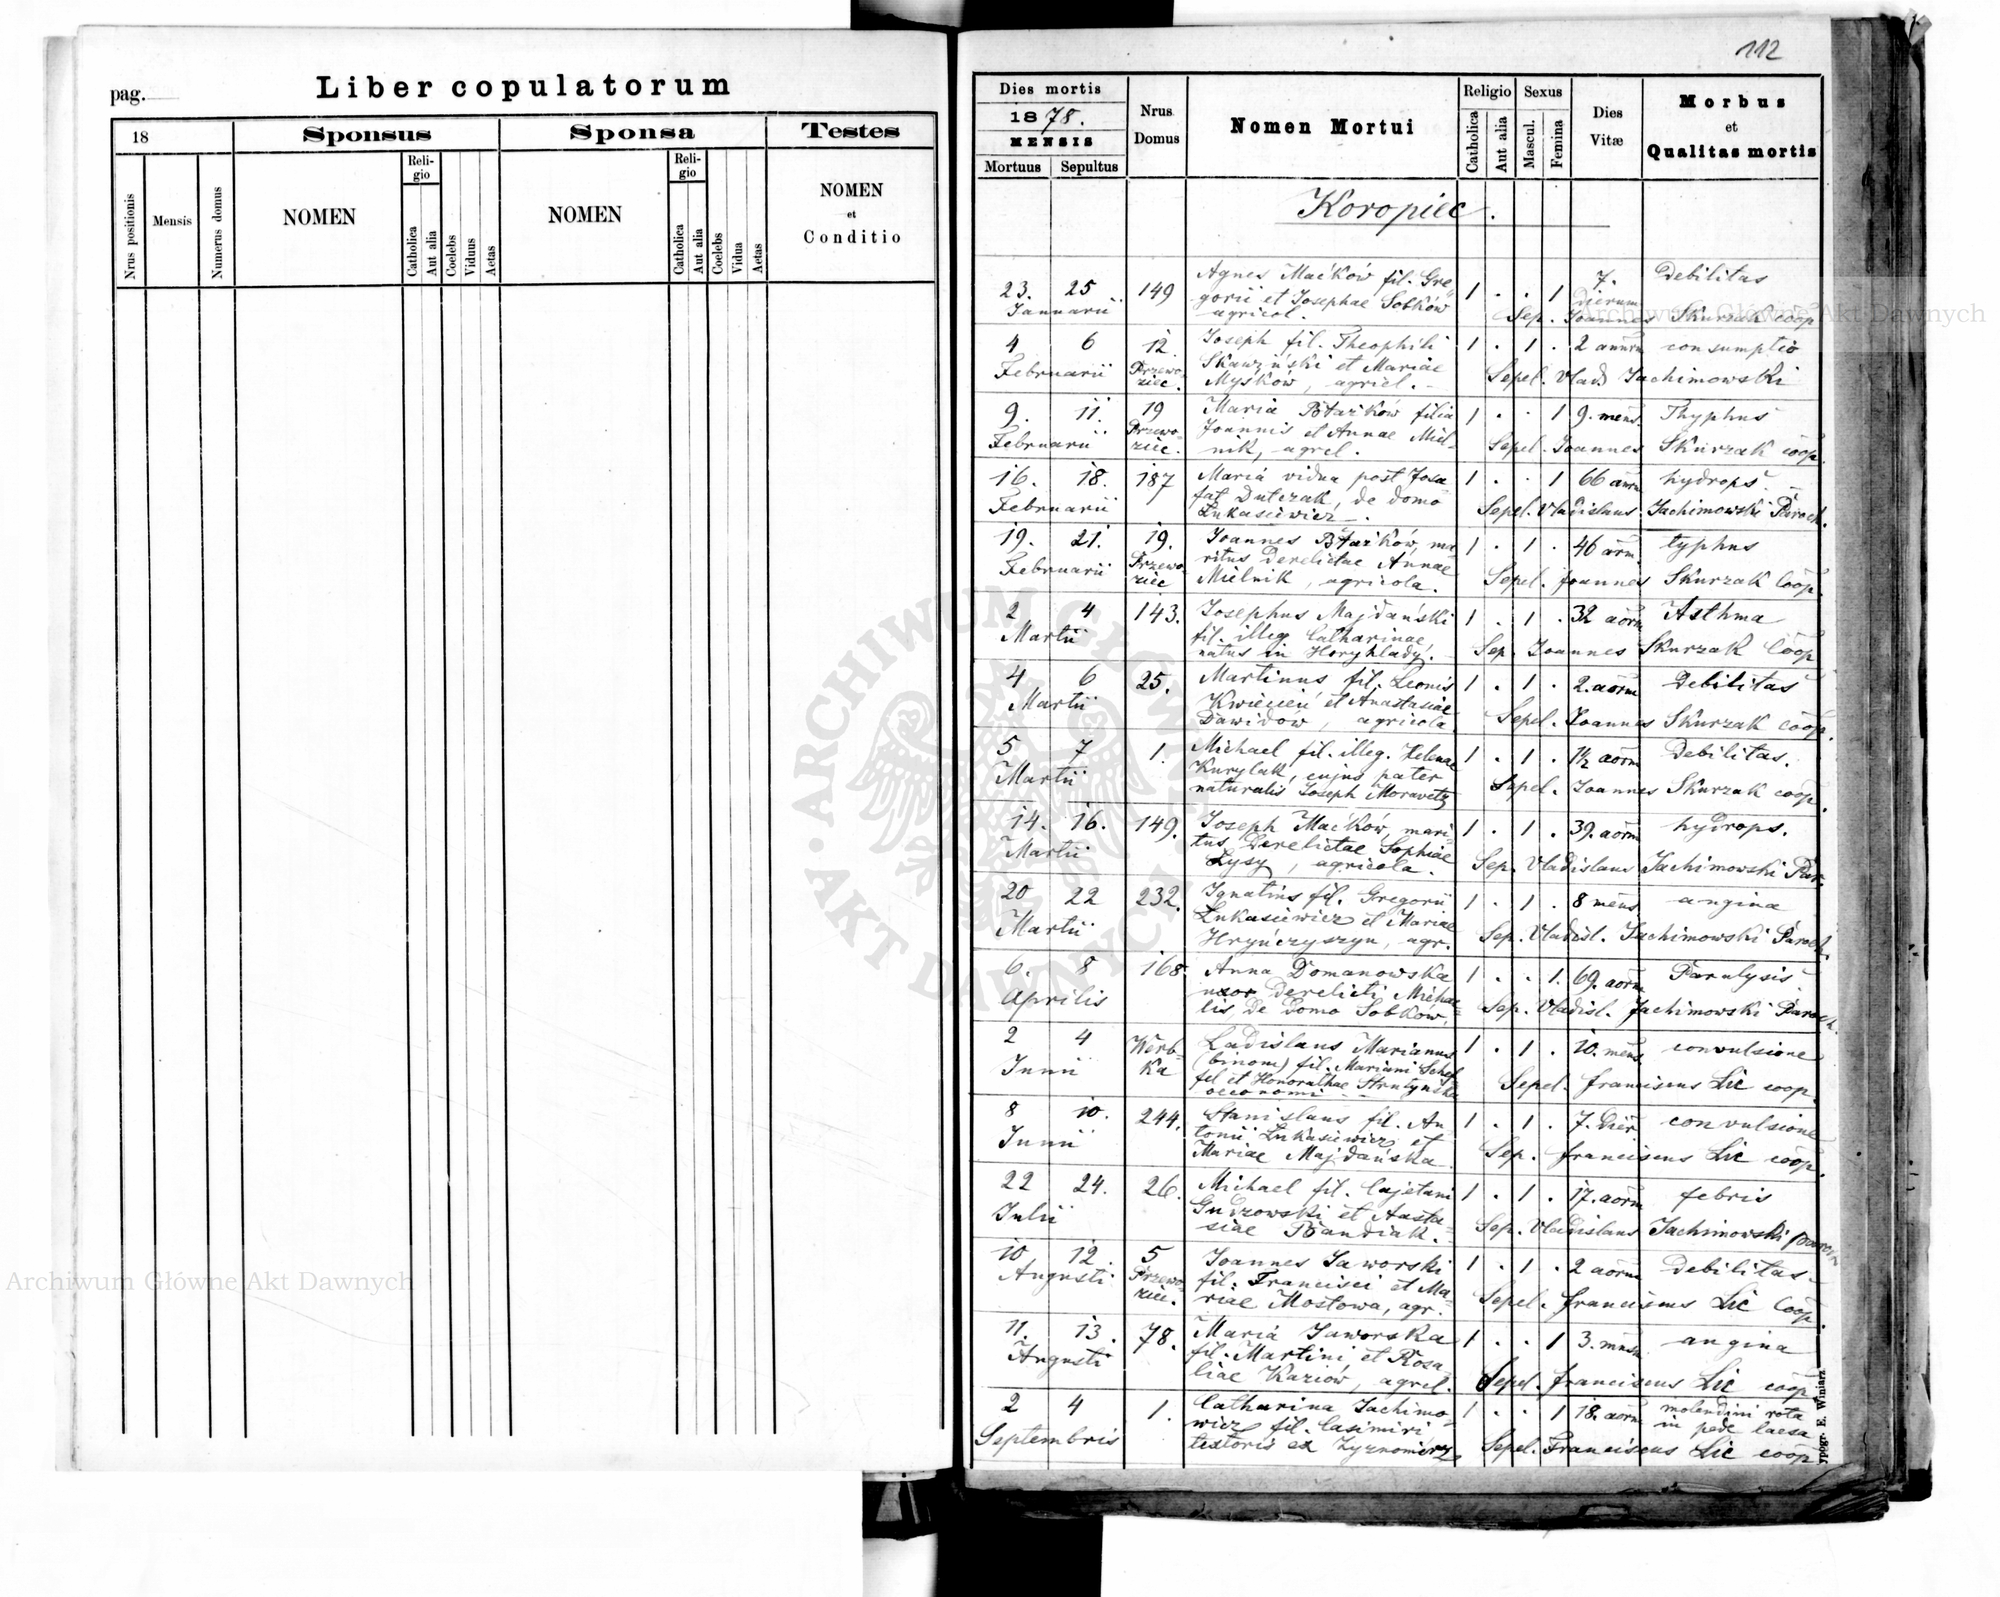 pag.
Liber copulatorum
18
Sponsus
Sponsa
Testes
Nrus positionis
Mensis
Numerus domus
NOMEN
Religio
Catholica
Aut alia
Coelebs
Viduus
Aetas
NOMEN
Religio
Catholica
Aut alia
Coelebs
Vidua
Aetas
NOMEN
et
Conditio
112
Dies mortis
1878.
MENSIS
Mortuus
Sepultus
Nrus
Domus
Nomen Mortui
Religio
Catholica
Aut alia
Sexus
Mascul.
Femina
Dies
Vitæ
Morbus
et
Qualitas mortis
Koropiec.
23. 25 149 Agnes Maćków, fil. Gre 1 . . 1 7. Debilitas
Januarii gorii et Josephae Sobków dierum
agricol. Sep. Joannes Skurzak coop
4 6 12. Joseph fil. Theophili 1 . 1 . 2 annrm consumptio
Februarii Przewo- Skawziński et Mariae
ziec. Myśków, agricl. Sepel. Vlad Jachimowski
9. 11. 19 Maria filia 1 . . 1 9. mens. Thyphus
Februarii Przewo- Joannis et Annae Miel-
ziec. nik, agrcl. Sepel. Joannes Skurzak coop.
16. 18. 187 Maria vidua post Josa 1 . . 1 66 annr hydrops
Februarii fat Dutczak, de domo
Łukasiewicz. Sepel. Vladislaus Jachimowski Paroch.
19. 21. 19. Joannes ma- 1 . 1 . 46 aorm typhus
Februarii Przewo- ritus derelictae Annae
ziec Mielnik, agricola. Sepel. Joannes Skurzak Coop.
2 4 143. Josephus Majdański 1 . 1 . 32 aorm Asthma
Martii fil. illeg. Catharinae,
natus in Horyhlady. Sep. Joannes Skurzak Coop
4 6 25. Martinus fil. Leonis 1 . 1 . 2. aorm Debilitas
Martii Kwiecień et Anastasiae
Dawidów, agricola Sepel. Joannes Skurzak coop.
5 7 1. Michael fil. illeg. Helenae 1 . 1 . 1½ aorm Debilitas.
Martii Kurylak, cujus pater
naturalis Joseph Moravetz Sepel. Joannes Skurzak coop.
14. 16. 149. Joseph Maćków, mari- 1 . 1 . 39. aorm hydrops.
Martii tus derelictae Sophiae
Łysy, agricola. Sep. Vladislaus Jachimowski Par.
20 22 232. Ignatius fil. Gregorii 1 . 1 . 8 mens. angina
Martii Łukasiewicz et Mariae
Hryńczyszyn, agr. Sep. Vladisl. Jachimowski Paroch.
6. 8 168. Anna Domanowska 1 . . 1. 69. aorm Paralysis
Aprilis uxor derelicti Michae-
lis de domo Sobków. Sep. Vladisl. Jachimowski Paroch.
2 4 Werb- Ladislaus Marianus 1 . 1 . 10. mens convulsione
Junii ka (binom) fil. Mariani Schef
fel et Honorathae
oeconomi Sepel. Franciscus Lic coop.
8 10. 244. Stanislaus fil. An 1 . 1 . 7. dier convulsione
Junii tonii Łukasiewicz et
Mariae Majdańska. Sep. Franciscus Lic coop.
22 24. 26. Michael fil. Cajetani 1 . 1 . 17. aorm febris
Julii Gudzowski et Aasta-
siae Bandiak. Sep. Vladislaus Jachimowski paroch
10 12. 5 Joannes Jaworski 1 . 1 . 2 aorm debilitas
Augusti Przewo- fil. Francisci et Ma-
ziec. riae Mostowa, agr. Sepel. Franciscus Lic Coop.
11. 13. 78. Maria Jaworska 1 . . 1 3. mnsm angina
Augusti fil. Martini et Rosa
liae Kaziow, agrcl. Sepel. Franciscus Lic coop
2 4 1. Catharina Jachimo- 1 . . 1 18. aorm molendini rota
Septembris wicz fil. Casimiri in pede laesa
textoris ex Zyznomirz Sepel. Franciscus Lic coop
ypogr. E. Winiarz
Archiwum Główne Akt Dawnych
Archiwum Główne Akt Dawnych
ARCHIWUM GŁÓWNE
AKT DAWNYCH